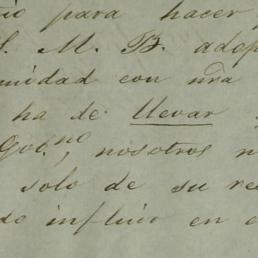 para hacer
S. M. B. adop
midad con nra
ha de llevar
Gob.no, nosotros n
solo de su re
do influir en